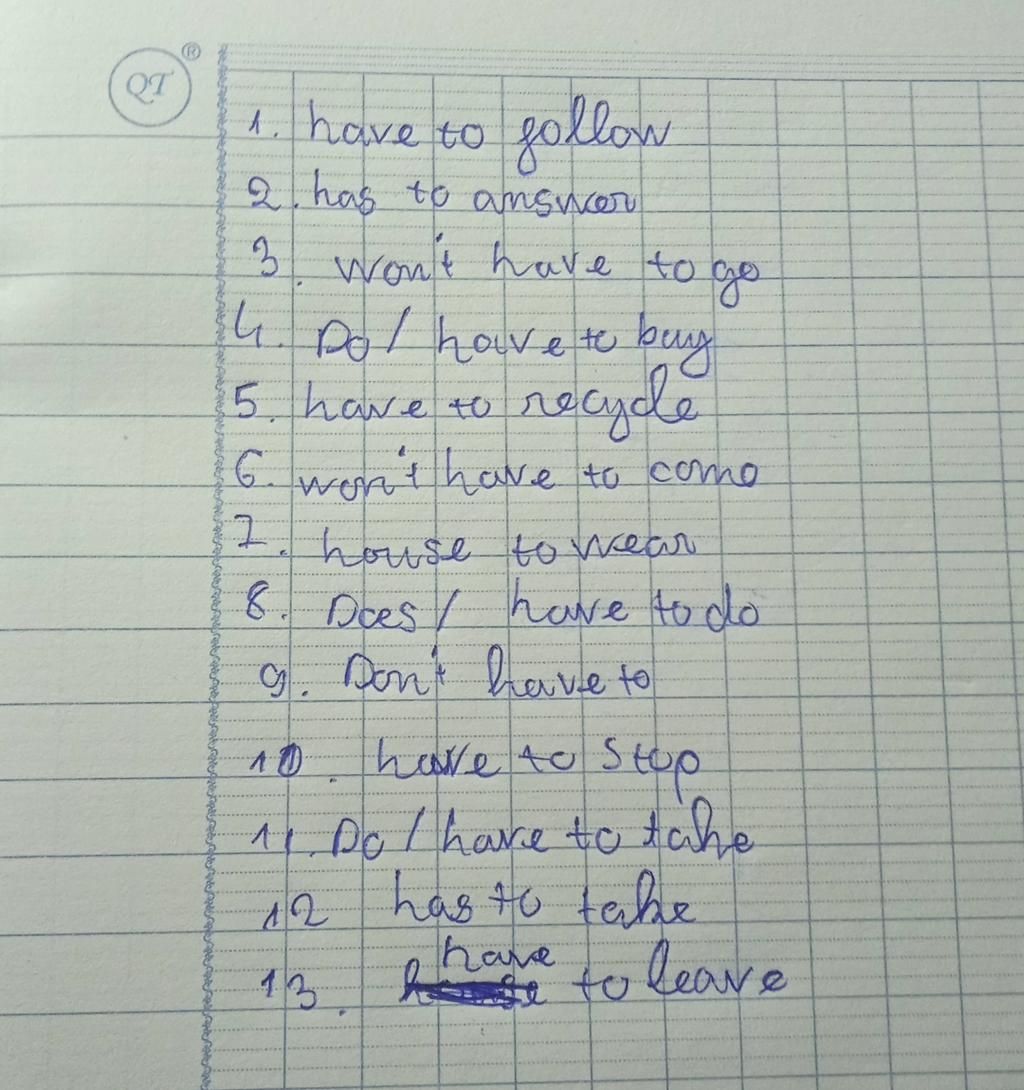 QT ®
1. have to follow
2. has to answer
3. won't have to go
4. Do / have to buy
5. have to recycle
6. won't have to come
7. house to wear
8. Does / have to do
9. Don't have to
10. have to stop
11. Do / have to take
12 has to take
have
13. to leave